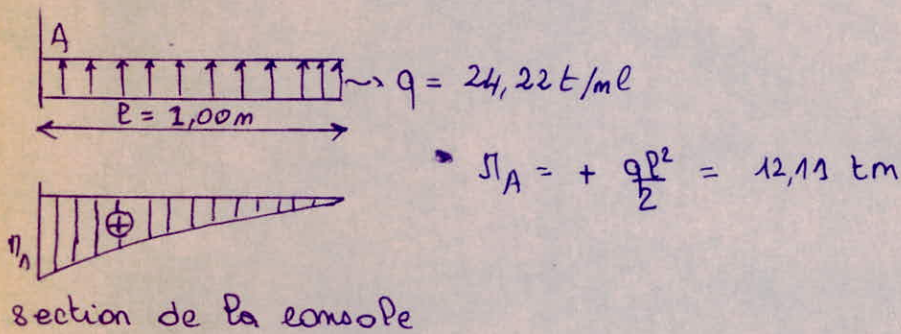 A
q = 24,22 t/ml
l = 1,00 m
M_A = + ql²/2 = 12,11 tm
⊕
M_A
section de la console